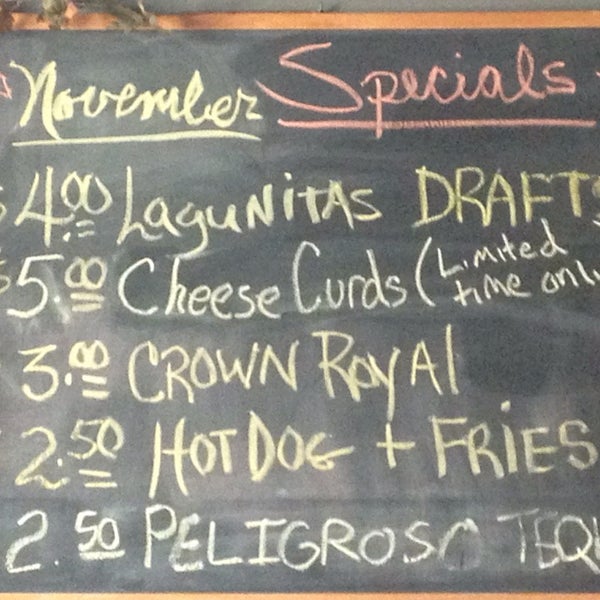 November Specials
$4.00 Lagunitas DRAFTS
$5.00 Cheese Curds (Limited time only
3.00 CROWN ROYAl
2.50 HOT DOG + FRIES
2.50 PELIGROSO TEQU